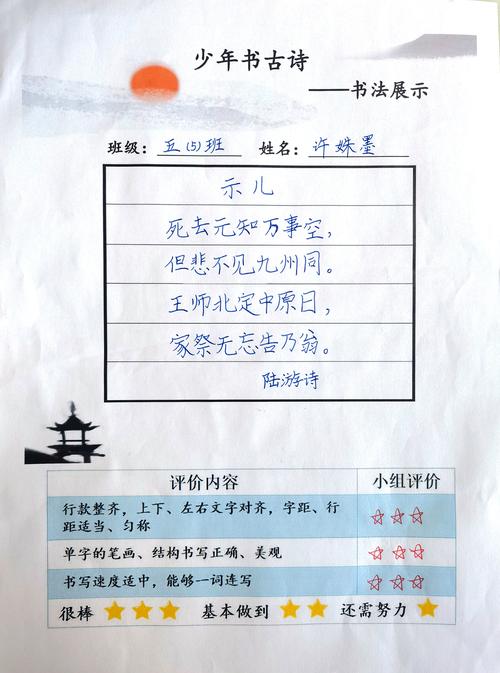 少年书古诗
——书法展示
班级：五（5）班 姓名：许姝墨
示儿
死去元知万事空，
但悲不见九州同。
王师北定中原日，
家祭无忘告乃翁。
陆游诗
评价内容 小组评价
行款整齐，上下、左右文字对齐，字距、行
距适当、匀称
单字的笔画、结构书写正确、美观
书写速度适中，能够一词连写
很棒 基本做到 还需努力